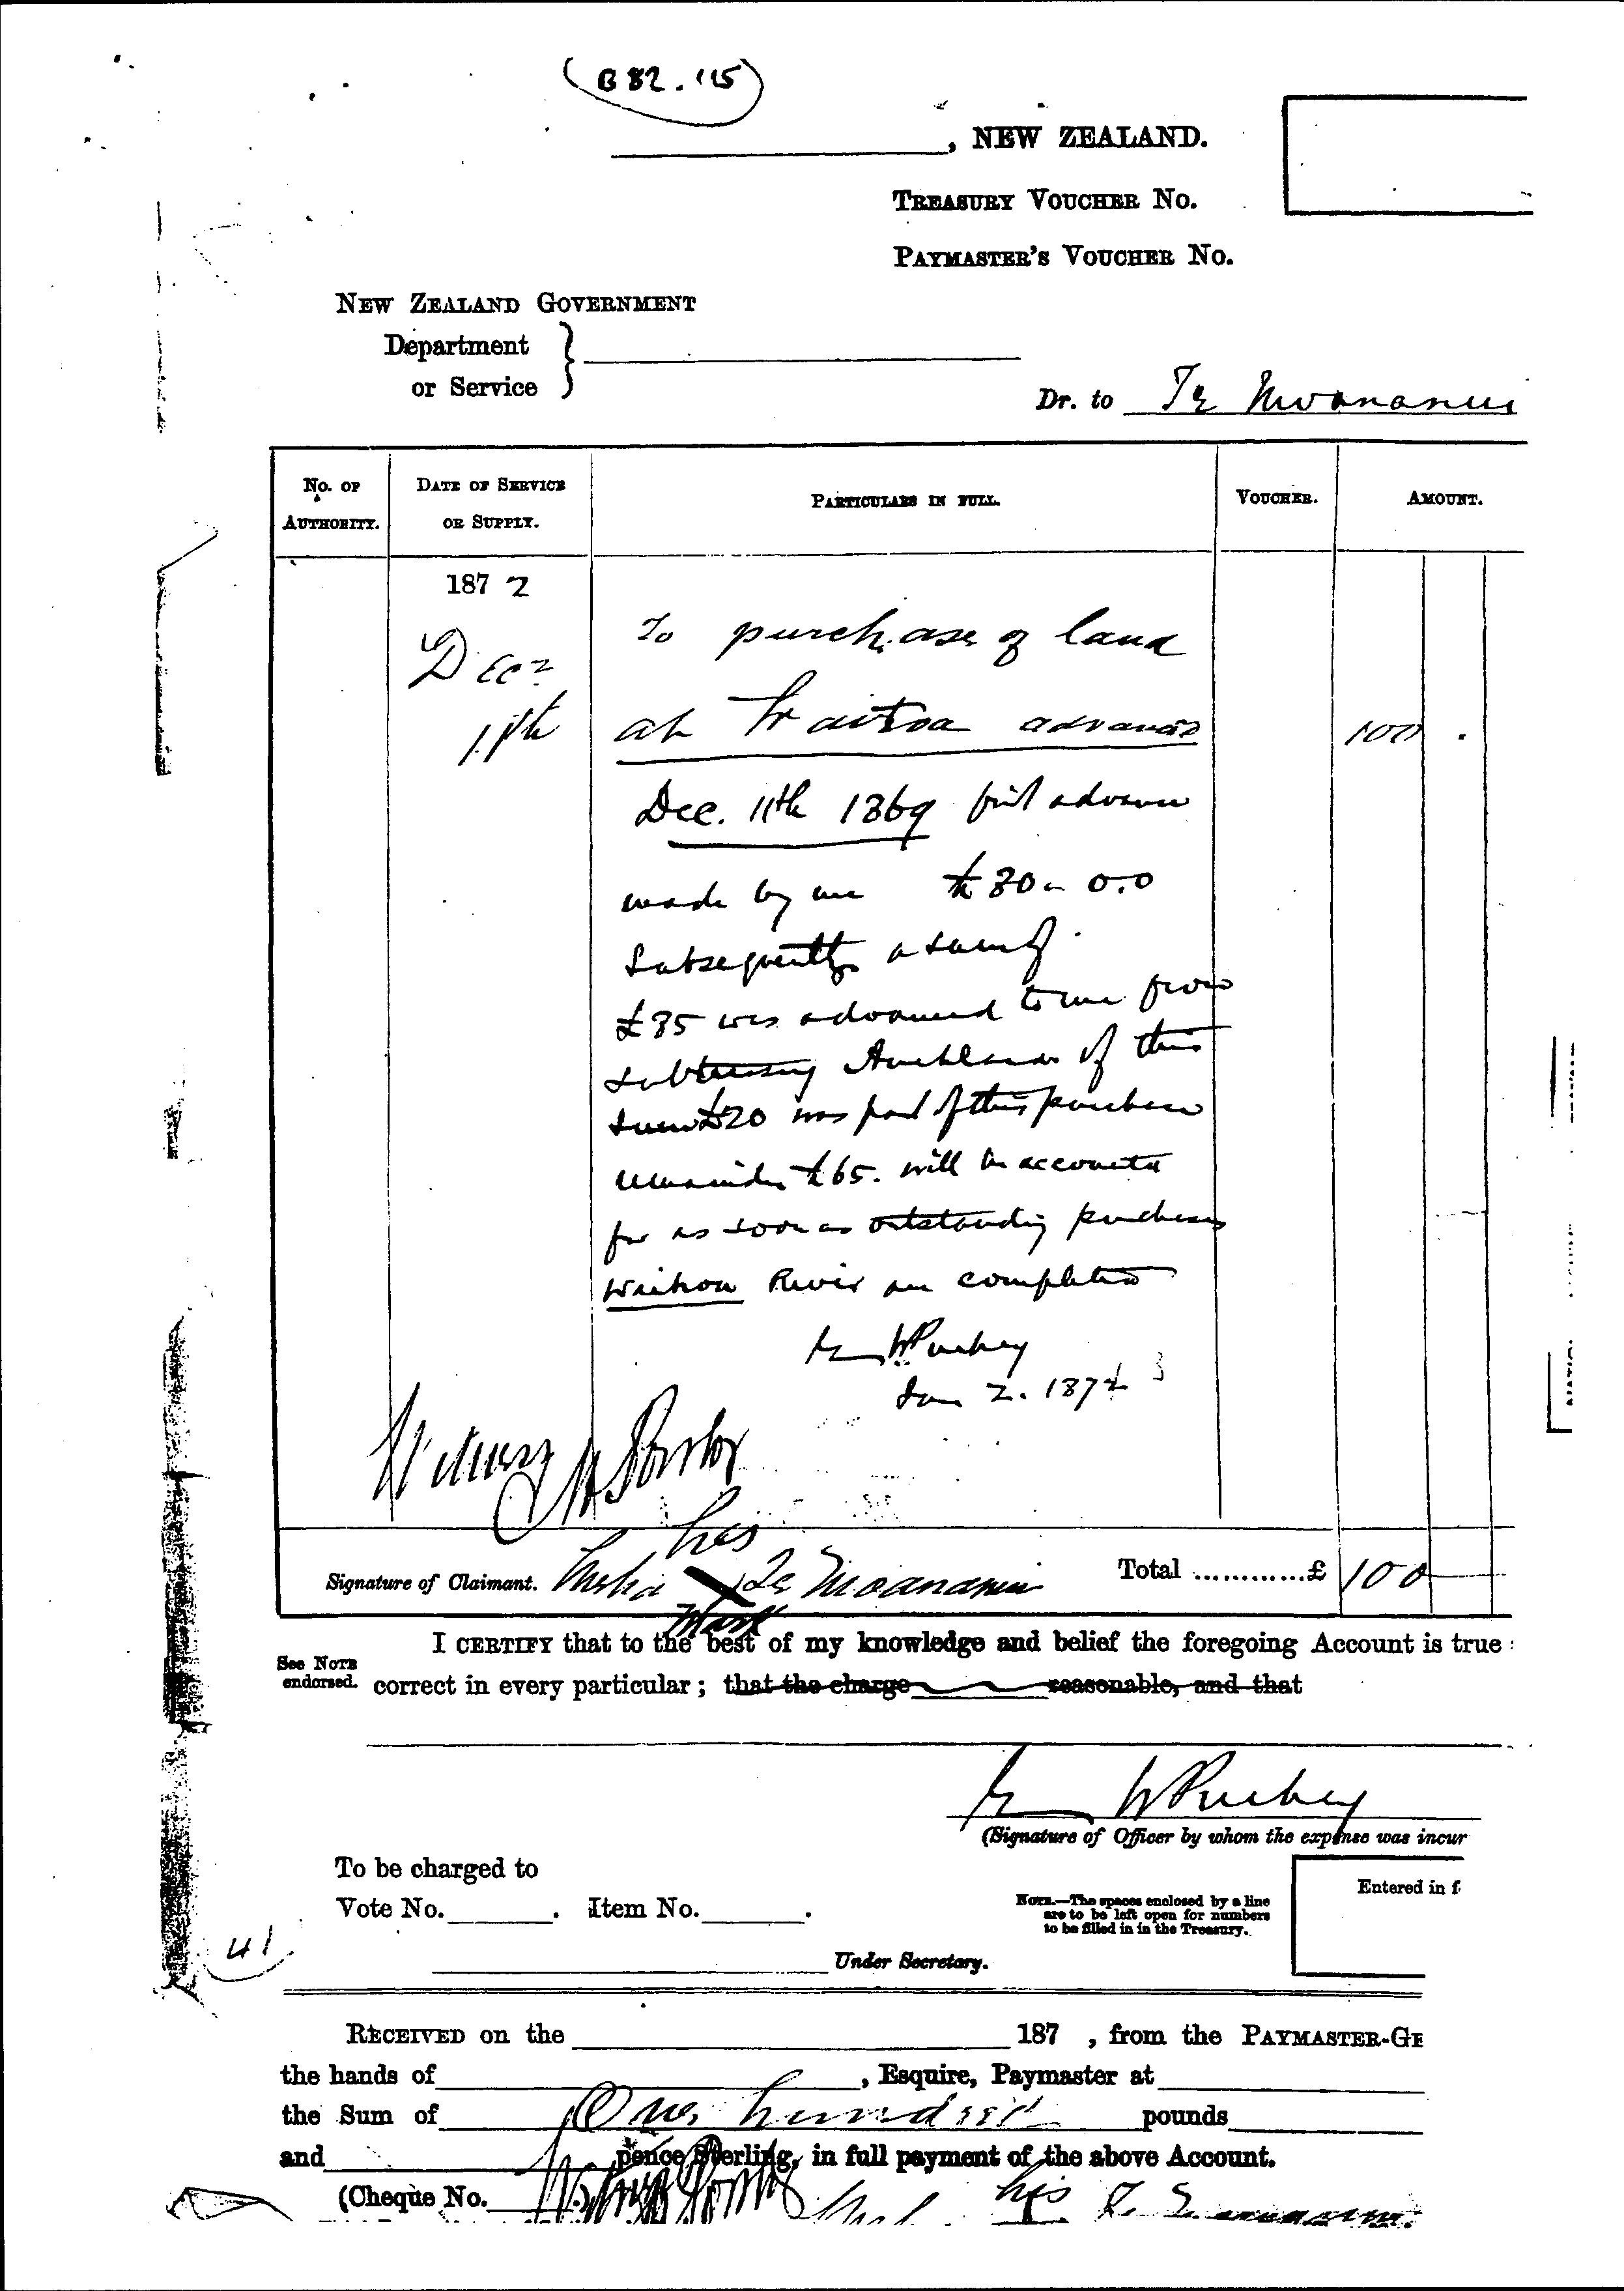 (B 82. 115)
, NEW ZEALAND.
TREASURY VOUCHER No.
PAYMASTER'S VOUCHER No.
NEW ZEALAND GOVERNMENT
Department
or Service
Dr. to Te Moananui
No. OF AUTHORITY.
DATE OF SERVICE OR SUPPLY.
PARTICULARS IN FULL.
VOUCHER.
AMOUNT.
1872
Decr 11th
To purchase of land
at Waitoa advance 100
Dec. 11th 1869 first advance
made by me £80-0.0
Subsequently a sum of
£85 was advanced to me from
Subtreasury Auckland of this
sum £20 was part of this purchase
remainder £65. will be accounted
for as soon as outstanding purchases
Waihou River are completed
E W Puckey
Jan 2. 187
Witness
his
Signature of Claimant. X Te Moananui
mark
Total ............£ 100
I CERTIFY that to the best of my knowledge and belief the foregoing Account is true
See NOTE endorsed.
correct in every particular; that the charge reasonable, and that
E W Puckey
(Signature of Officer by whom the expense was incur
To be charged to
Vote No. . Item No. .
NOTE.—The spaces enclosed by a line
are to be left open for numbers
to be filled in in the Treasury.
Entered in f
41
Under Secretary.
RECEIVED on the 187 , from the PAYMASTER-GE
the hands of , Esquire, Paymaster at
the Sum of One hundred pounds
and pence Sterling, in full payment of the above Account.
(Cheque No. .)
his